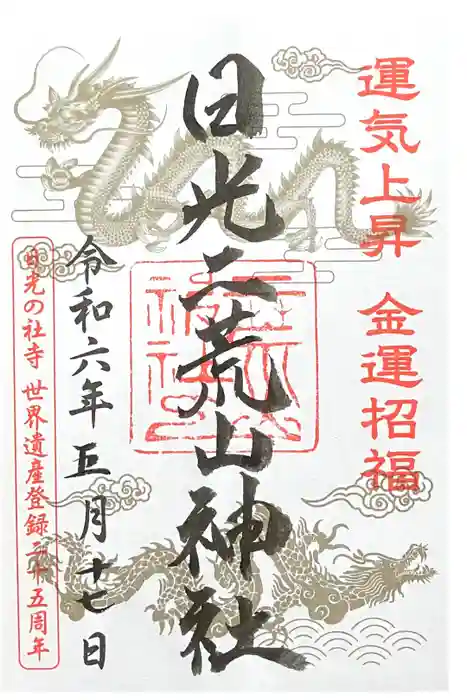 運気上昇 金運招福
日光二荒山神社
令和六年五月十七日
日光の社寺 世界遺産登録二十五周年